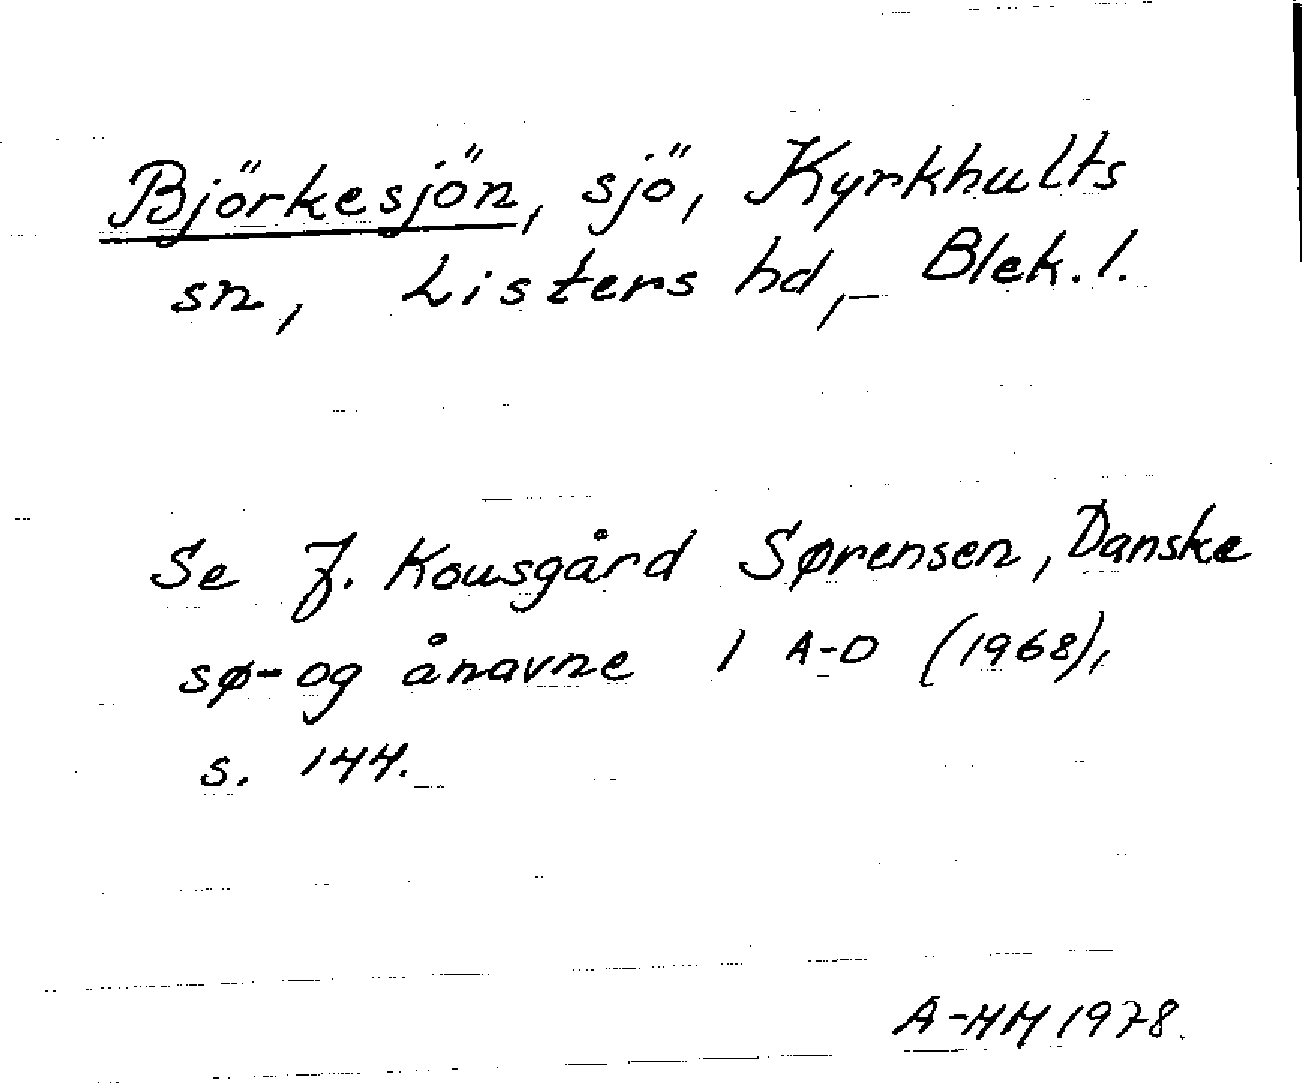 Björkesjön, sjö, Kyrkhults
sn, Listers hd, Blek. l.
Se J. Kousgård Sørensen, Danske
sø- og ånavne 1 A-D (1968),
s. 144.
A-HM 1978.